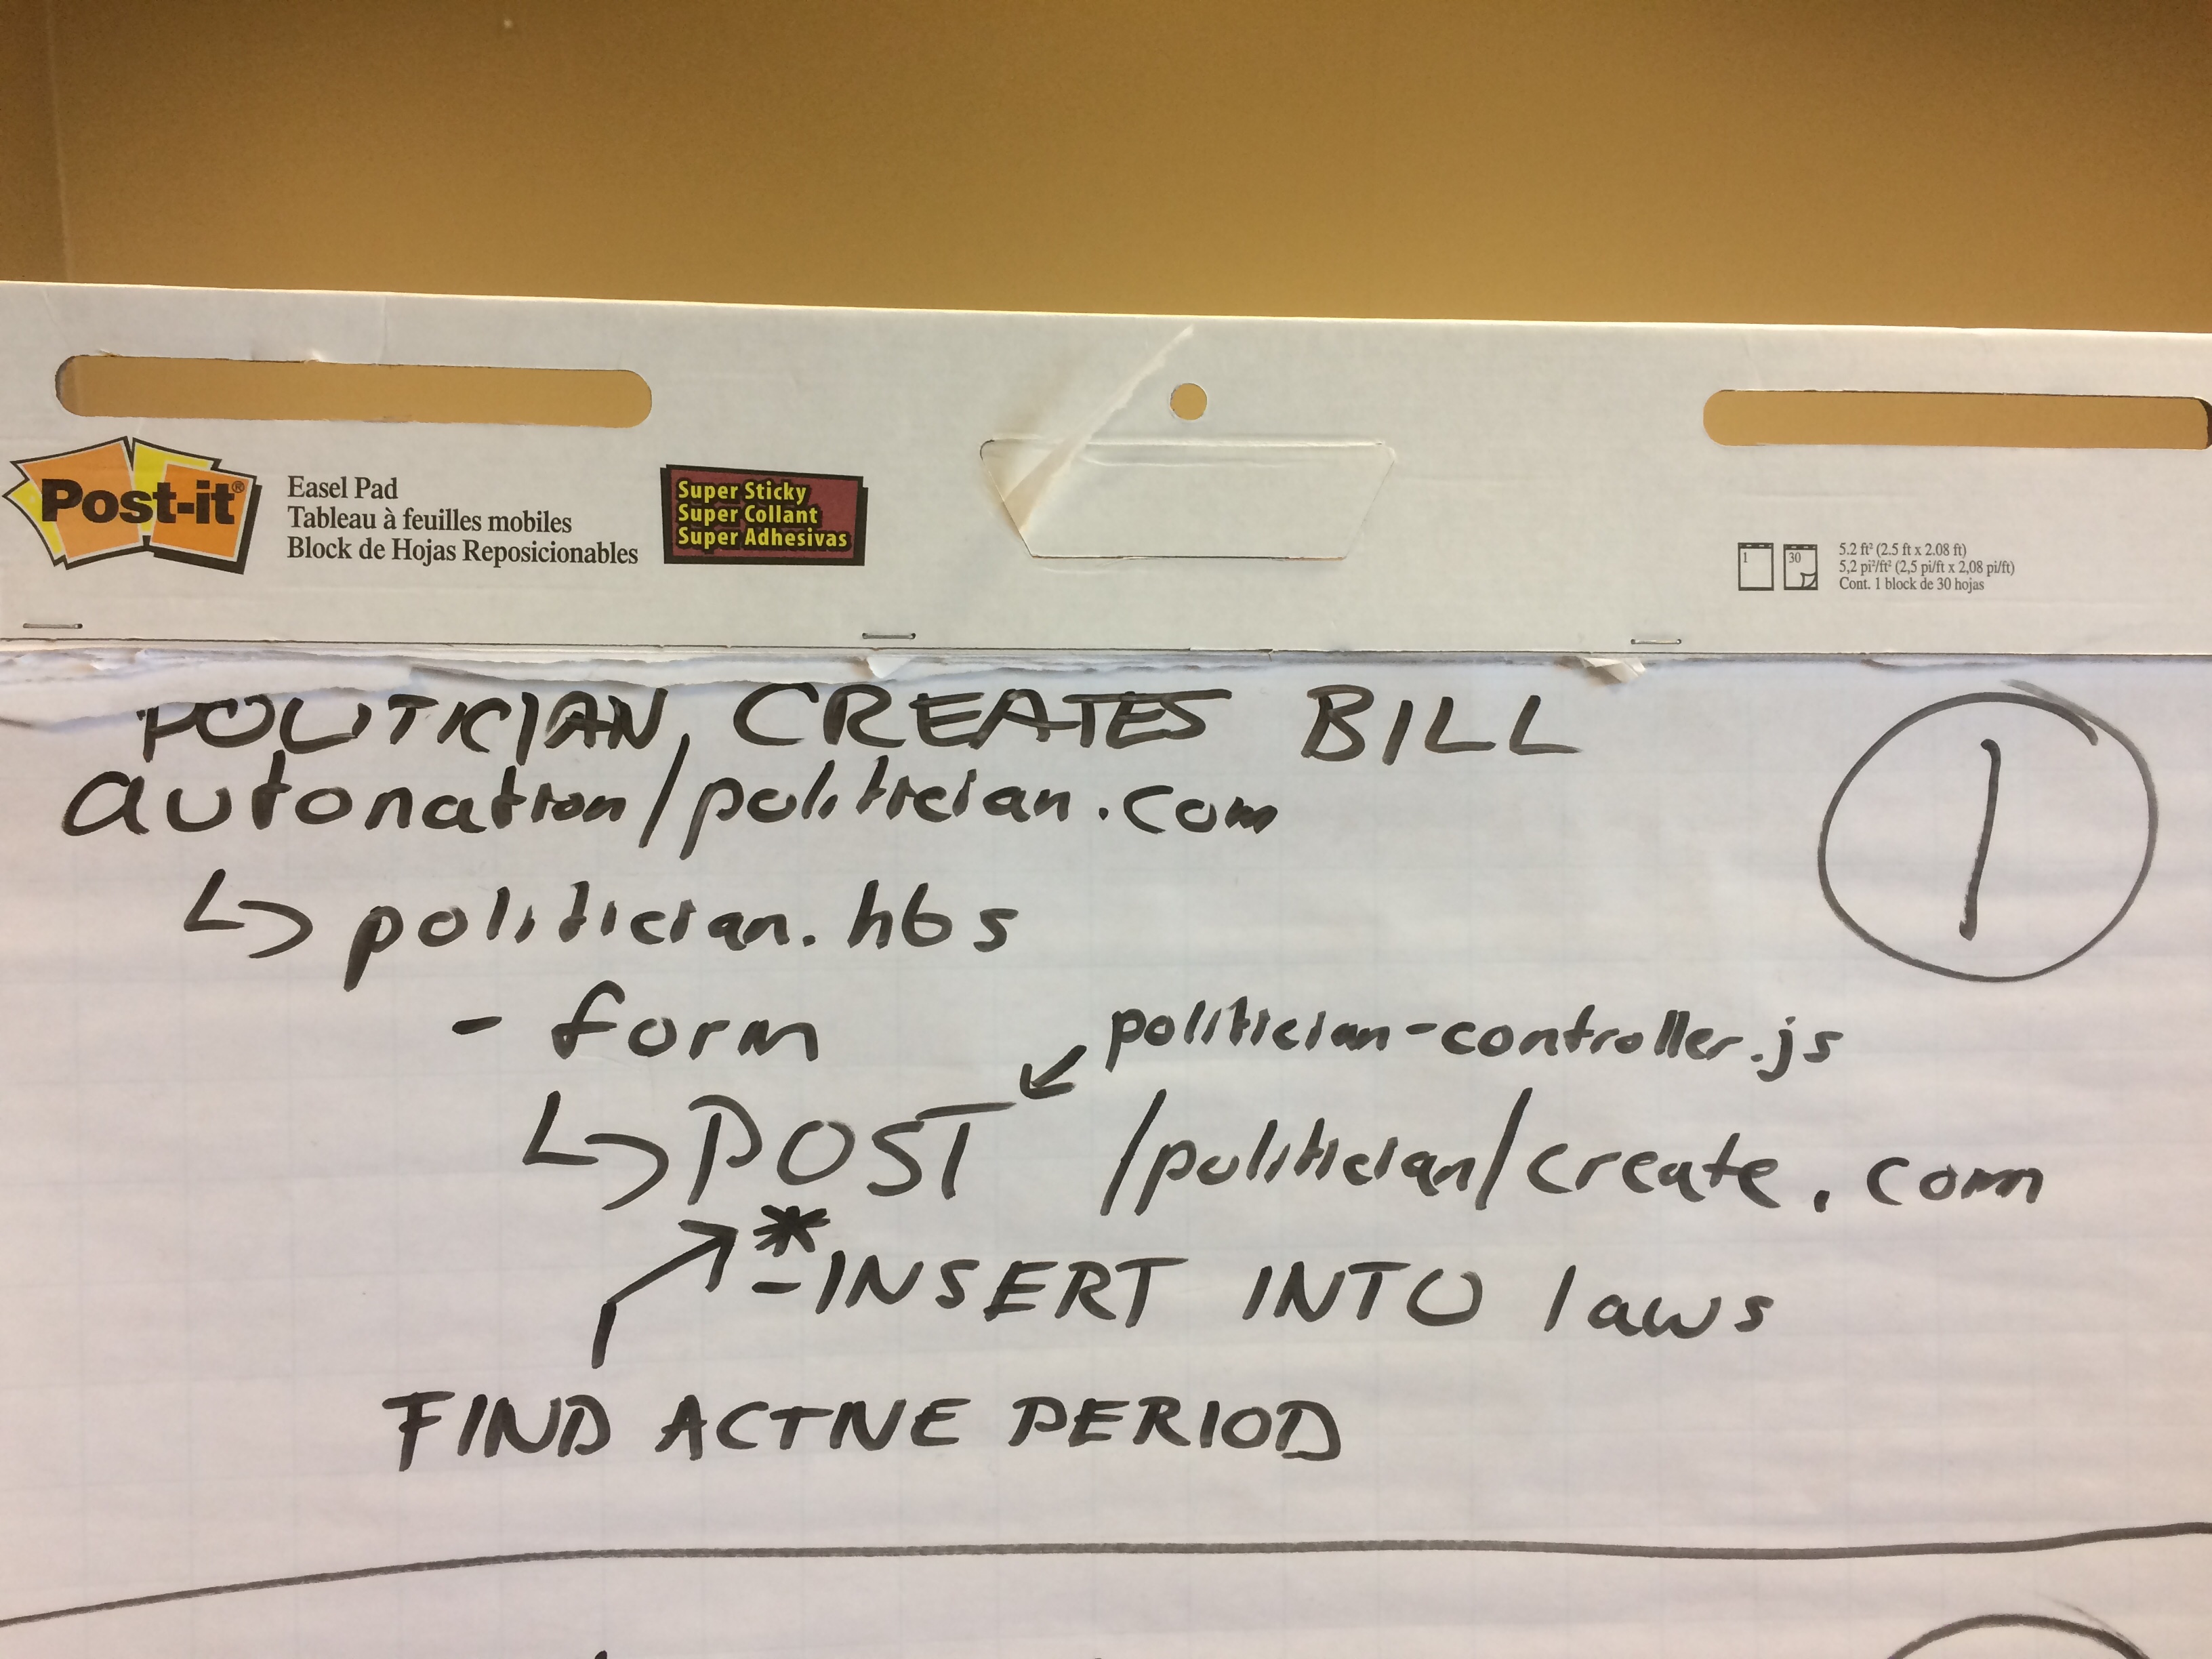 Post-it®
Easel Pad
Tableau à feuilles mobiles
Block de Hojas Reposicionables
Super Sticky
Super Collant
Super Adhesivas
1
30
5.2 ft² (2.5 ft x 2.08 ft)
5,2 pi²/ft² (2,5 pi/ft x 2,08 pi/ft)
Cont. 1 block de 30 hojas
POLITICIAN CREATES BILL
1
autonation/politician.com
↳ politician.hbs
- form
politician-controller.js
↳ POST /politician/create.com
*
- INSERT INTO laws
FIND ACTIVE PERIOD